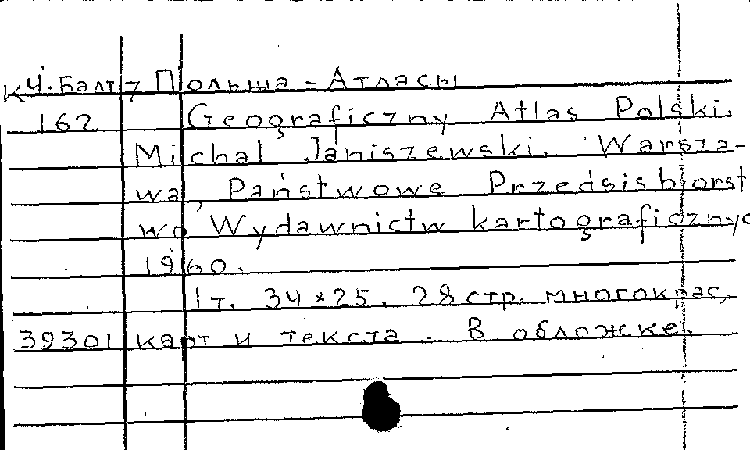 К4.Балт7 Польша - Атласы
162 Geograficzny Atlas Polski.
Michal Janiszewski. Warsza-
wa, Państwowe Przedsisbiorst
wo Wydawnictw kartograficznyc
1960.
1 т. 34*25. 28 стр. многокрас,
39301 карт и текста. В обложке.